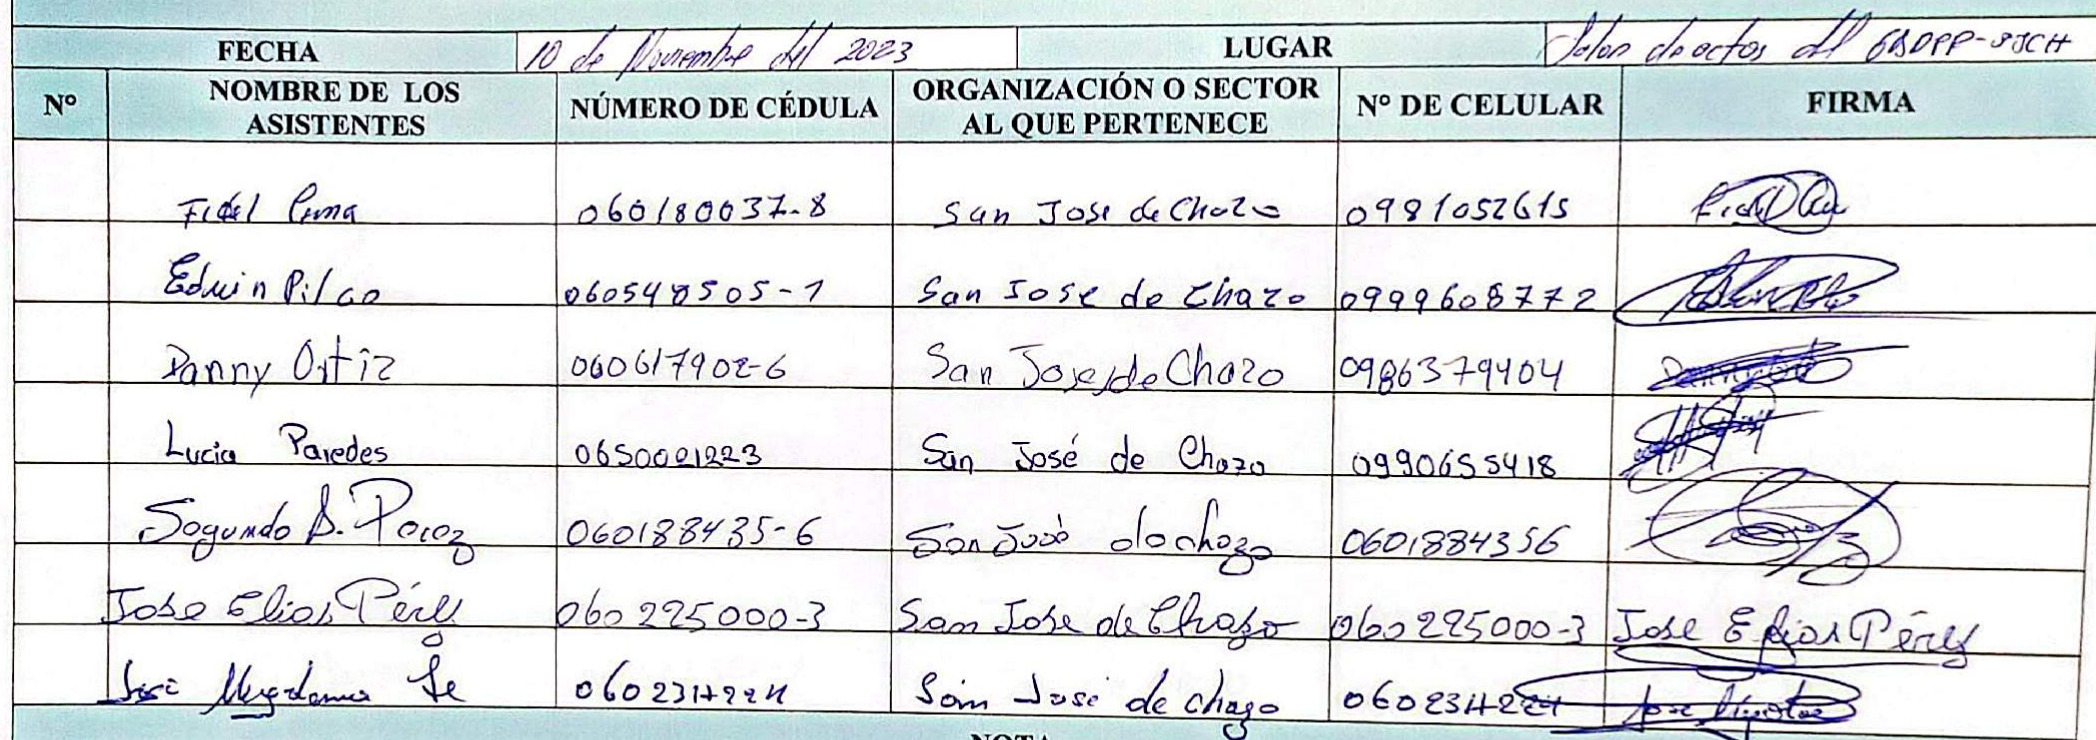 FECHA 10 de Noviembre del 2023 LUGAR Salon de actos del GADPP-SJCH
Nº NOMBRE DE LOS ASISTENTES NÚMERO DE CÉDULA ORGANIZACIÓN O SECTOR AL QUE PERTENECE Nº DE CELULAR FIRMA
Fidel 060180037-8 San Jose de Chazo 0981052615
Edwin Pilco 060548505-1 San Jose de Chazo 0999608772
Danny Ortiz 060617902-6 San Jose de Chazo 0986379404
Lucia Paredes 0650021223 San José de Chazo 0990655418
Segundo B. Perez 060188435-6 San José de chazo 0601884356
Jose Elias Pérez 060225000-3 San Jose de Chazo 060225000-3 Jose Elias Pérez
José San José de chazo Jose
NOTA